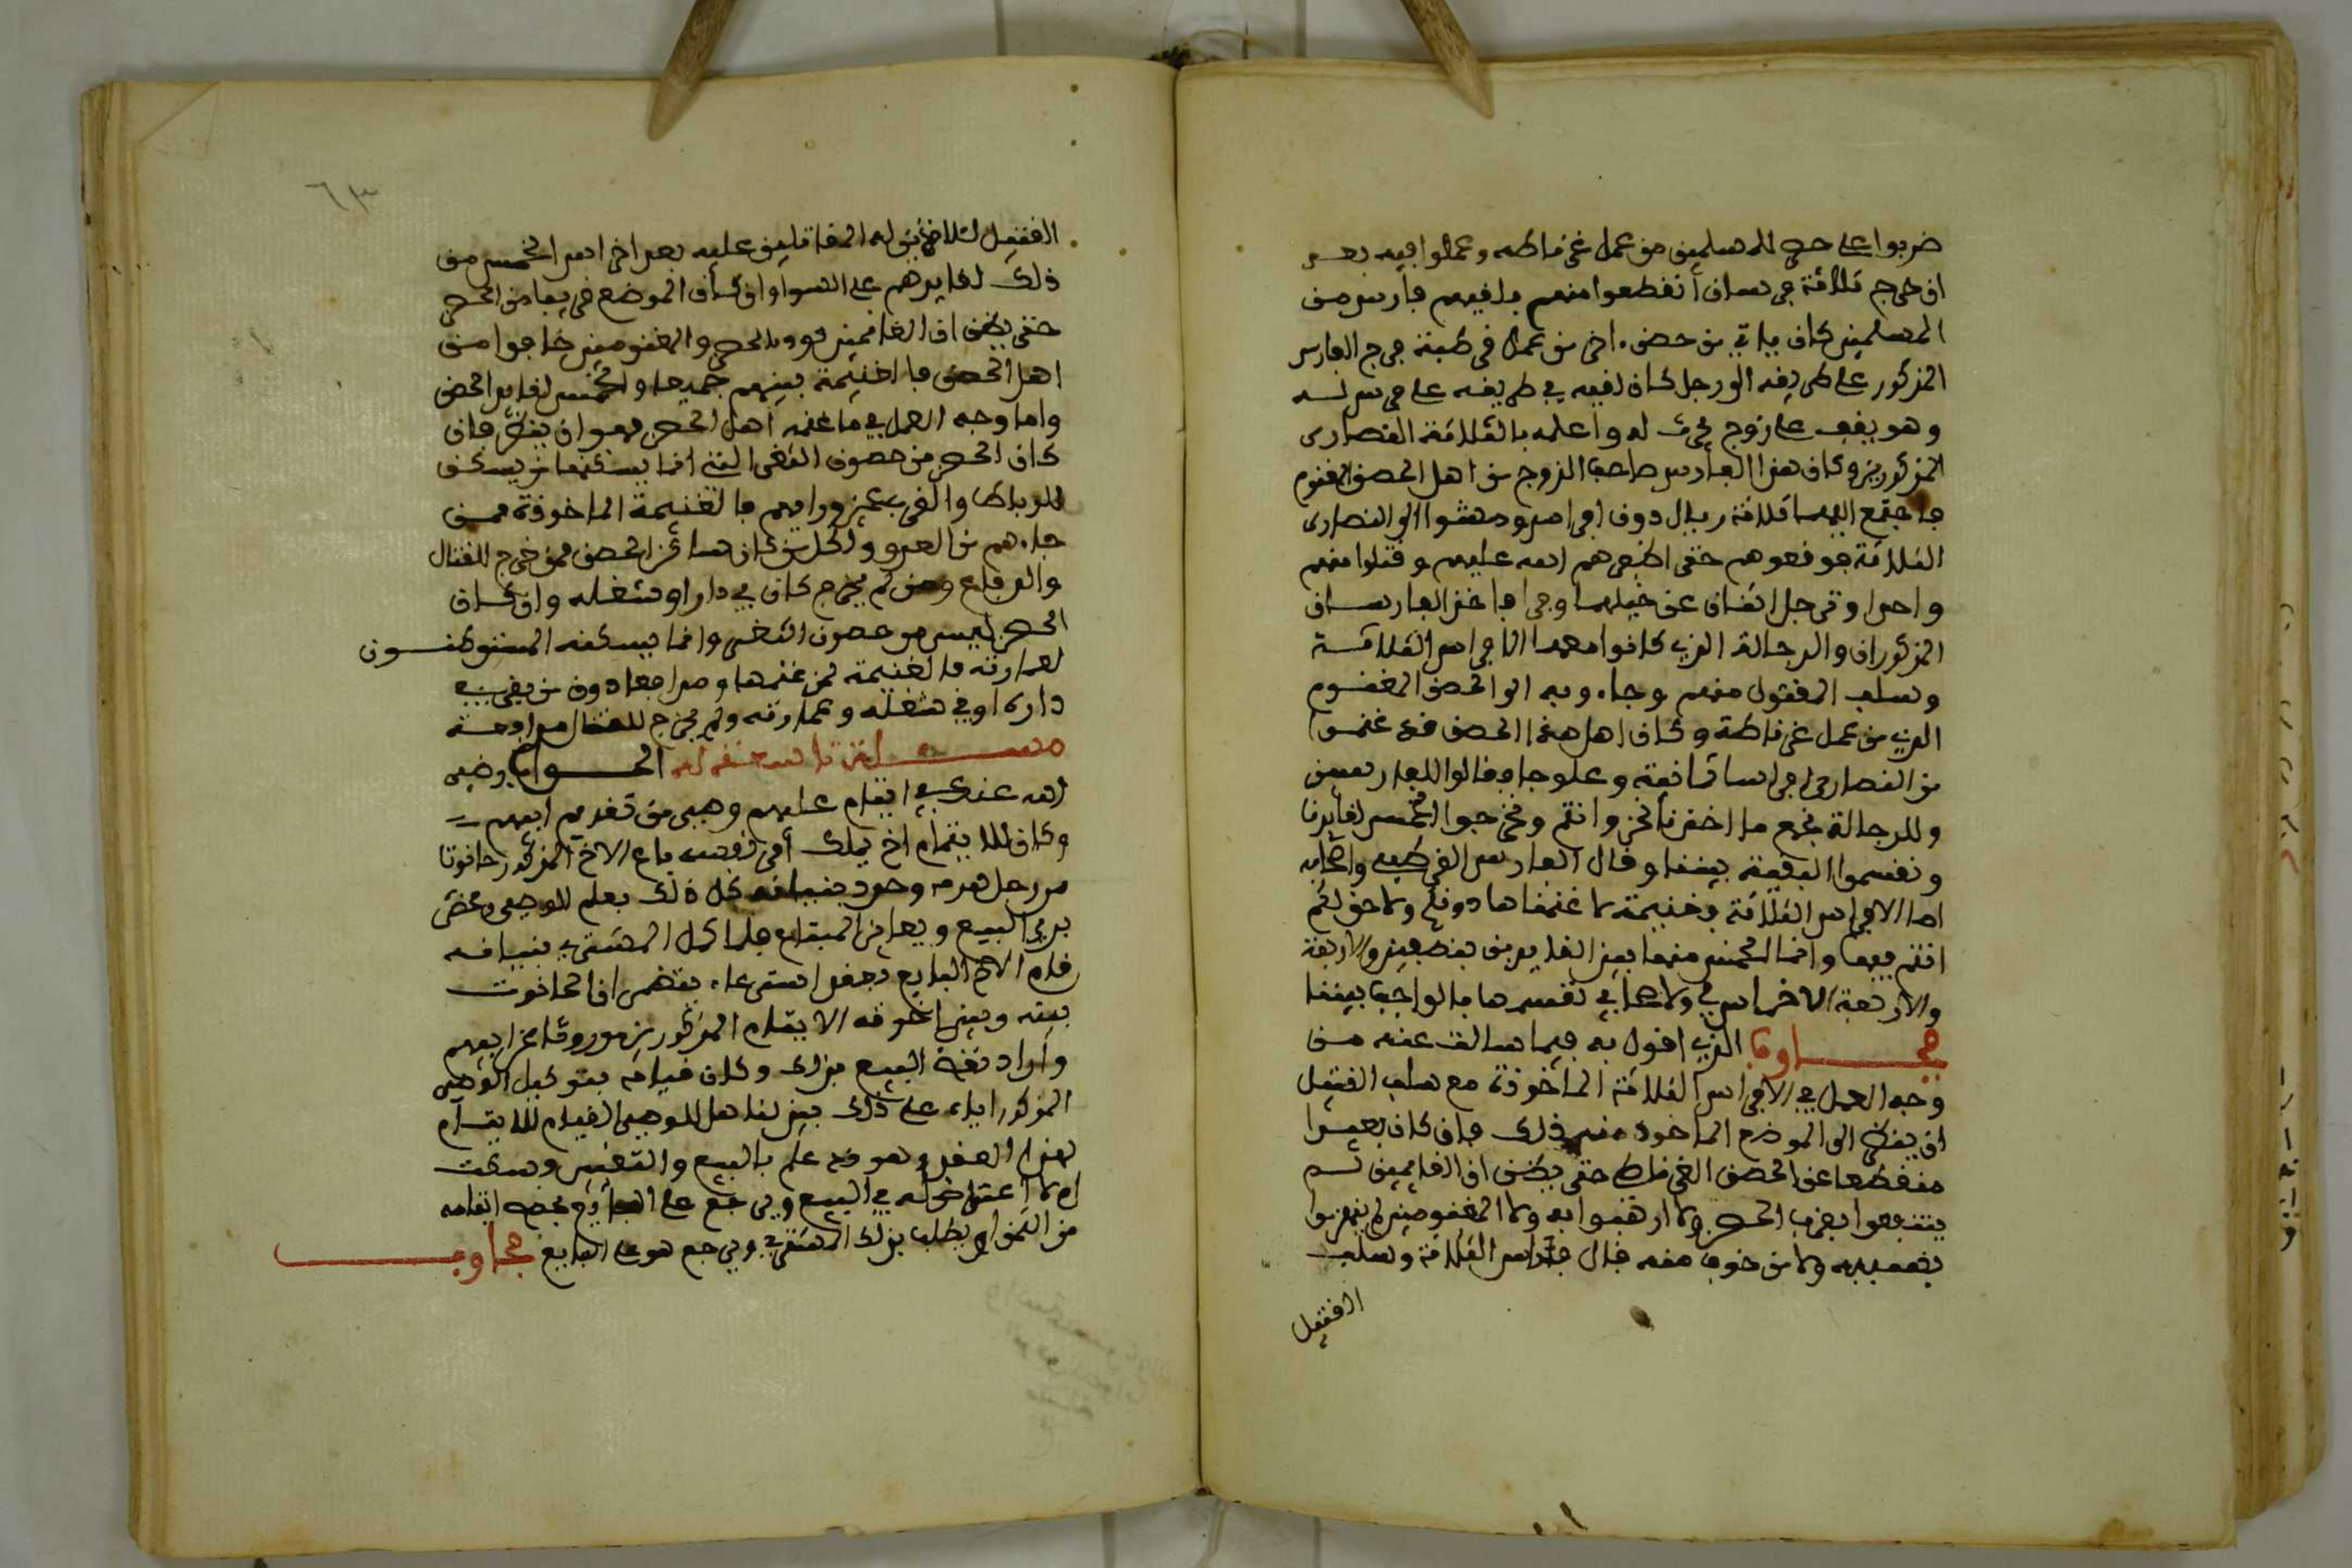 ضربوا على حصن للمسلمين من عمل غرناطة وعملوا فيه بعد
ان خرج ثلاثة فرسان انقطعوا منهم فلقيهم فارس من
المسلمين كان ياتي من حصن اخر من عمل قرطبة فرجع الفارس
المذكور على طريقه الى رجل كان لقيه في طريقه على فرس له
وهو يقف على زوج يحرث له واعلمه بالثلاثة النصارى
المذكورين وكان هذا الفارس صاحب الزوج من اهل الحصن المغنوم
فاجتمع اليهما ثلاثة رجال دون افراس ومشوا الى النصارى
الثلاثة فدفعوهم حتى اظفرهم الله عليهم وقتلوا منهم
واحدا وترجل اثنان عن خيلهما وفرا فاخذ الفارسان
المذكوران والرجالة الذين كانوا معهما الافراس الثلاثة
وسلب المقتول منهم وجاءو به الى الحصن المغنوم
الذي من عمل غرناطة وكان اهل هذا الحصن قد غنموا
من النصارى افراسا ثمانية وعلوجا فقالوا للفارسين
وللرجالة نجمع ما اخذنا نحن وانتم ونخرجوا الخمس لقايدنا
ونقسموا البقية بيننا وقال الفارس القرطبي واصحابه
اما الافراس الثلاثة فغنيمة لنا غنمناها دونكم ولا حق لكم
انتم فيها وانما الخمس منها بين القايدين بنصفين والاربعة
والاربعة الاخماس لي ولاصحابي نقسمها بالواجب بيننا
فجاوب الذي اقول به فيما سالت عنه من
وجه العمل في الافراس الثلاثة الماخوذة مع سلب القتيل
ان ينظر الى الموضع الماخوذ فيه ذلك فان كان بعيدا
منقطعا عن الحصن الغرناطي حتى يظن ان الغانمين لم
ينتفعوا بقرب الحصن ولا ارهبوا به ولا المغنومين لم ينهزموا
بسببه ولا من خوف منه فال فراس الثلاثة وسلب
القتيل
٦٣
القتيل للاخذين له المقاتلين عليه بعد اخراج الخمس من
ذلك لقايدهم على السوا وان كان الموضع قريبا من الحصن
حتى يظن ان الغانمين قووا بالحصن والمغنومين خافوا من
اهل الحصن فالغنيمة بينهم جميعا والخمس لقايد الحصن
واما وجه العمل في ما غنمه اهل الحصن فهو ان ينظر فان
كان الحصن من حصون الثغر التي انما يسكنها من يسكن
للرباط والذب عمن وراءهم فالغنيمة الماخوذة ممن
جاءهم من العدو لكل من كان ساكن الحصن ممن خرج للقتال
والدفاع ومن لم يخرج كان في داره او شغله وان كان
الحصن ليس من حصون الثغر وانما يسكنه المستوطنون
لعمارته فالغنيمة لمن غنمها ودافع دون من بقي في
داره او في شغله وعمارته ولم يخرج للقتال
مسـلة الجواب رضي
الله عنه في ايتام عليهم وصي من تقديم ابيهم
وكان للايتام اخ يملك امر نفسه باع الاخ المذكور حانوتا
من رجل هدمه وجدد بنيانه كل ذلك بعلم الوصي
يرى البيع ويعاين المبتاع فلما اكمل المشتري بنيانه
قام الاخ البايع بعقد استرعاء يتضمن ان الحانوت
بينه وبين اخوته الايتام المذكورين موروثا عن ابيهم
واراد نقض البيع بذلك وكان قيامه بتوكيل الوصي
المذكور اياه على ذلك بين لنا هل للوصي القيام للايتام
بهذا العقد وهو قد علم بالبيع والتغيير وسكت
ام لا اعتراض له في البيع ويرجع على البايع بحصة ايتامه
من الثمن او يطلب بذلك المشتري ويرجع هو على البايع فجاوب